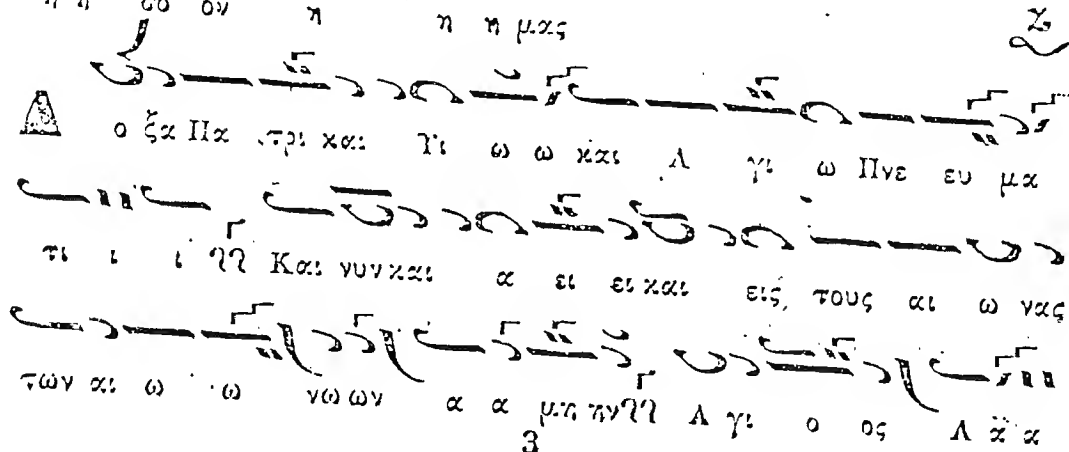 η η σο ον η η η μας
Δ ο ξα Πα τρι και Υι ω ω και Α γι ω Πνε ευ μα
τι ι ι Και νυν και α ει ει και εις τους αι ω νας
των αι ω ω νω ων α α μη ην Α γι ο ος Α α α
3